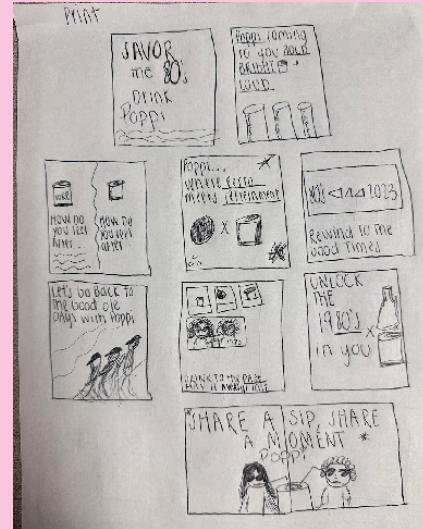 Print
SAVOR
the 80's
DRINK
Poppi
Poppi coming
to you BOLD
BRIGHT
LOUD
HOW DO
you feel
After...
HOW DO
you feel
after
Poppi...
where retro
meets refreshment
X
80's 2023
Rewind to the
Good Times
Let's Go Back to
the Good ole
Days with Poppi
UNLOCK
THE
1980's
X
in you
SHARE A SIP, SHARE
A MOMENT
Poppi